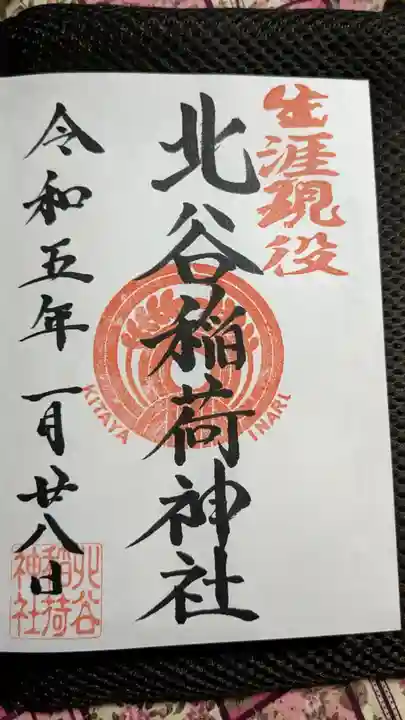 生涯現役
北谷稲荷神社
KITAYA INARI
令和五年一月廿八日
北谷
稲荷
神社